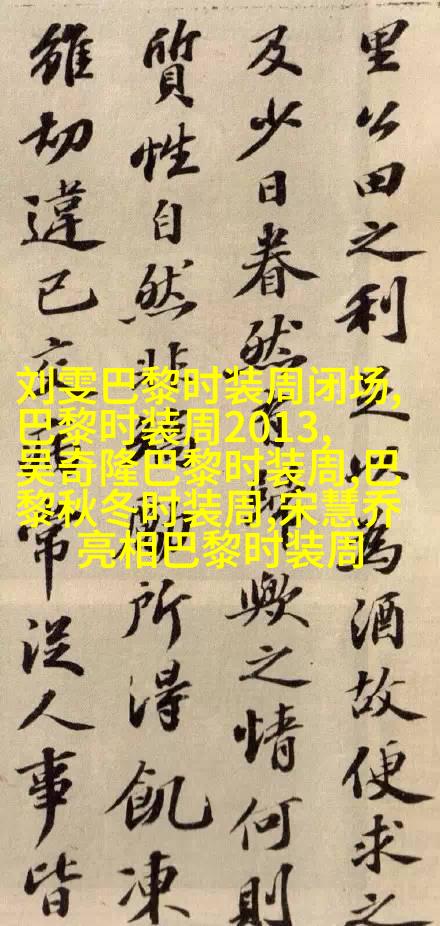 里公田之利足以為酒故便求之
及少日眷然有歸歟之情何則
質性自然非矯勵所得飢凍
雖切違己交病常從人事皆
刘雯巴黎时装周闭场,
巴黎时装周2013,
吴奇隆巴黎时装周,巴
黎秋冬时装周,宋慧乔
亮相巴黎时装周